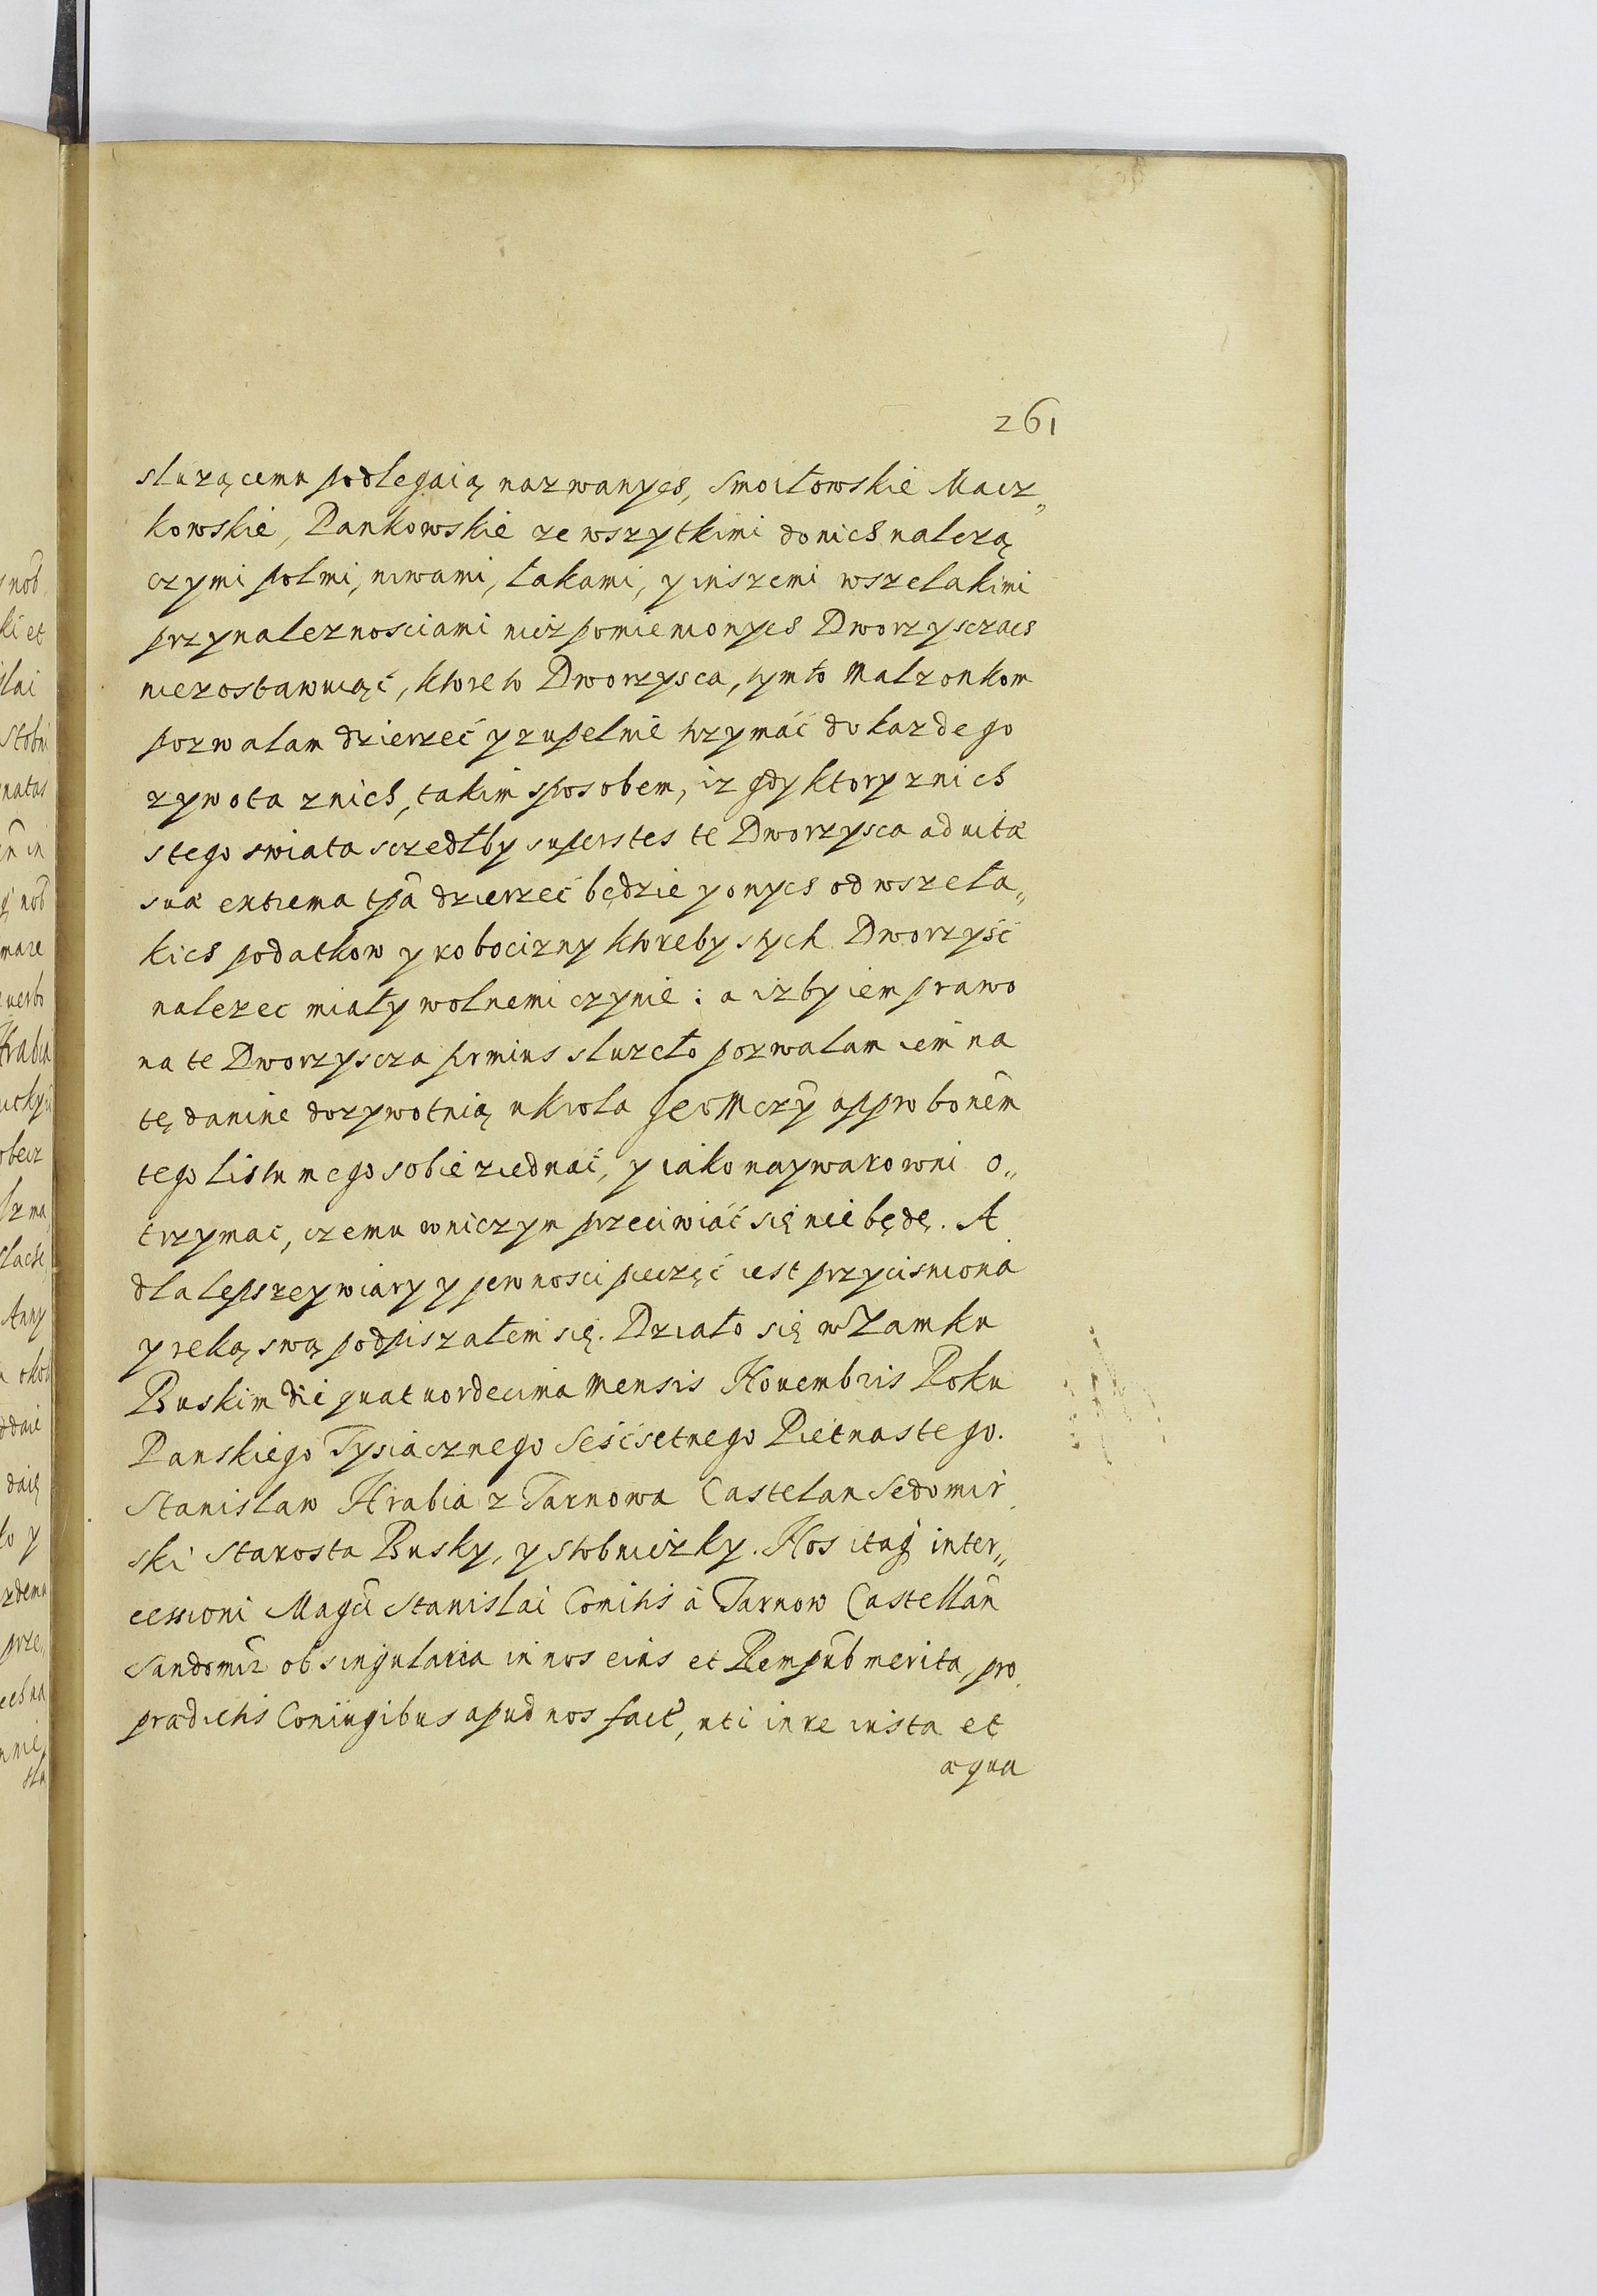 261
sluzącemu podlegaią nazwanych, Smoiłowskie Macz„
kowskie, Pankowskie ze wszytkimi do nich nalezą
czymi polmi, niwami, łakami, y inszemi wszelakimi
przynaleznosciami nicz pomienionych Dworzysczach
niezostawuiąć, ktore to Dworzysca, tymto Malzonkom
pozwalam dzierzeć y zupelnie trzymać do kazdego
zywota znich, takim sposobem, iz gdy ktory znich
stego swiata szedłby superstes te Dworzysca ad uitā
suā extrema tp̄a dzierzeć będzie y onych od wszela„
kich podatkow y robocizny ktoreby stych Dworzysć
nalezec miały wolnemi czynię: a izby iem prawo
na te Dworzyscza firmius sluzeło pozwalam iem na
tę danine dozywotnią u Krola Jeo Mczy̅ approbonem̅
tego listu mego sobie ziednać, y iako naywarowni o„
trzymac, czemu wniczym przeciwiać się nie będę. A
dla lepszey wiary y pewnosci pieczęć iest przycisniona
y reką swą podpiszałem się. Działo się w Zamku
Buskim die quatuordecima Mensis Nouembris Roku
Panskiego Tysiacznego Sesćsetnego Pietnastego.
Stanislaw Hrabia z Tarnowa Castelan Sedomir
ski Starosta Busky, y Stobniczky. Nos itaq̃ inter„
cessioni Magc̃i Stanislai Comitis à Tarnow Castellañ
Sandomir̃ ob singularia in nos eius et Rempub̃ merita, pro
prædictis Coniugibus apud nos facť, uti in re iusta et
æqua